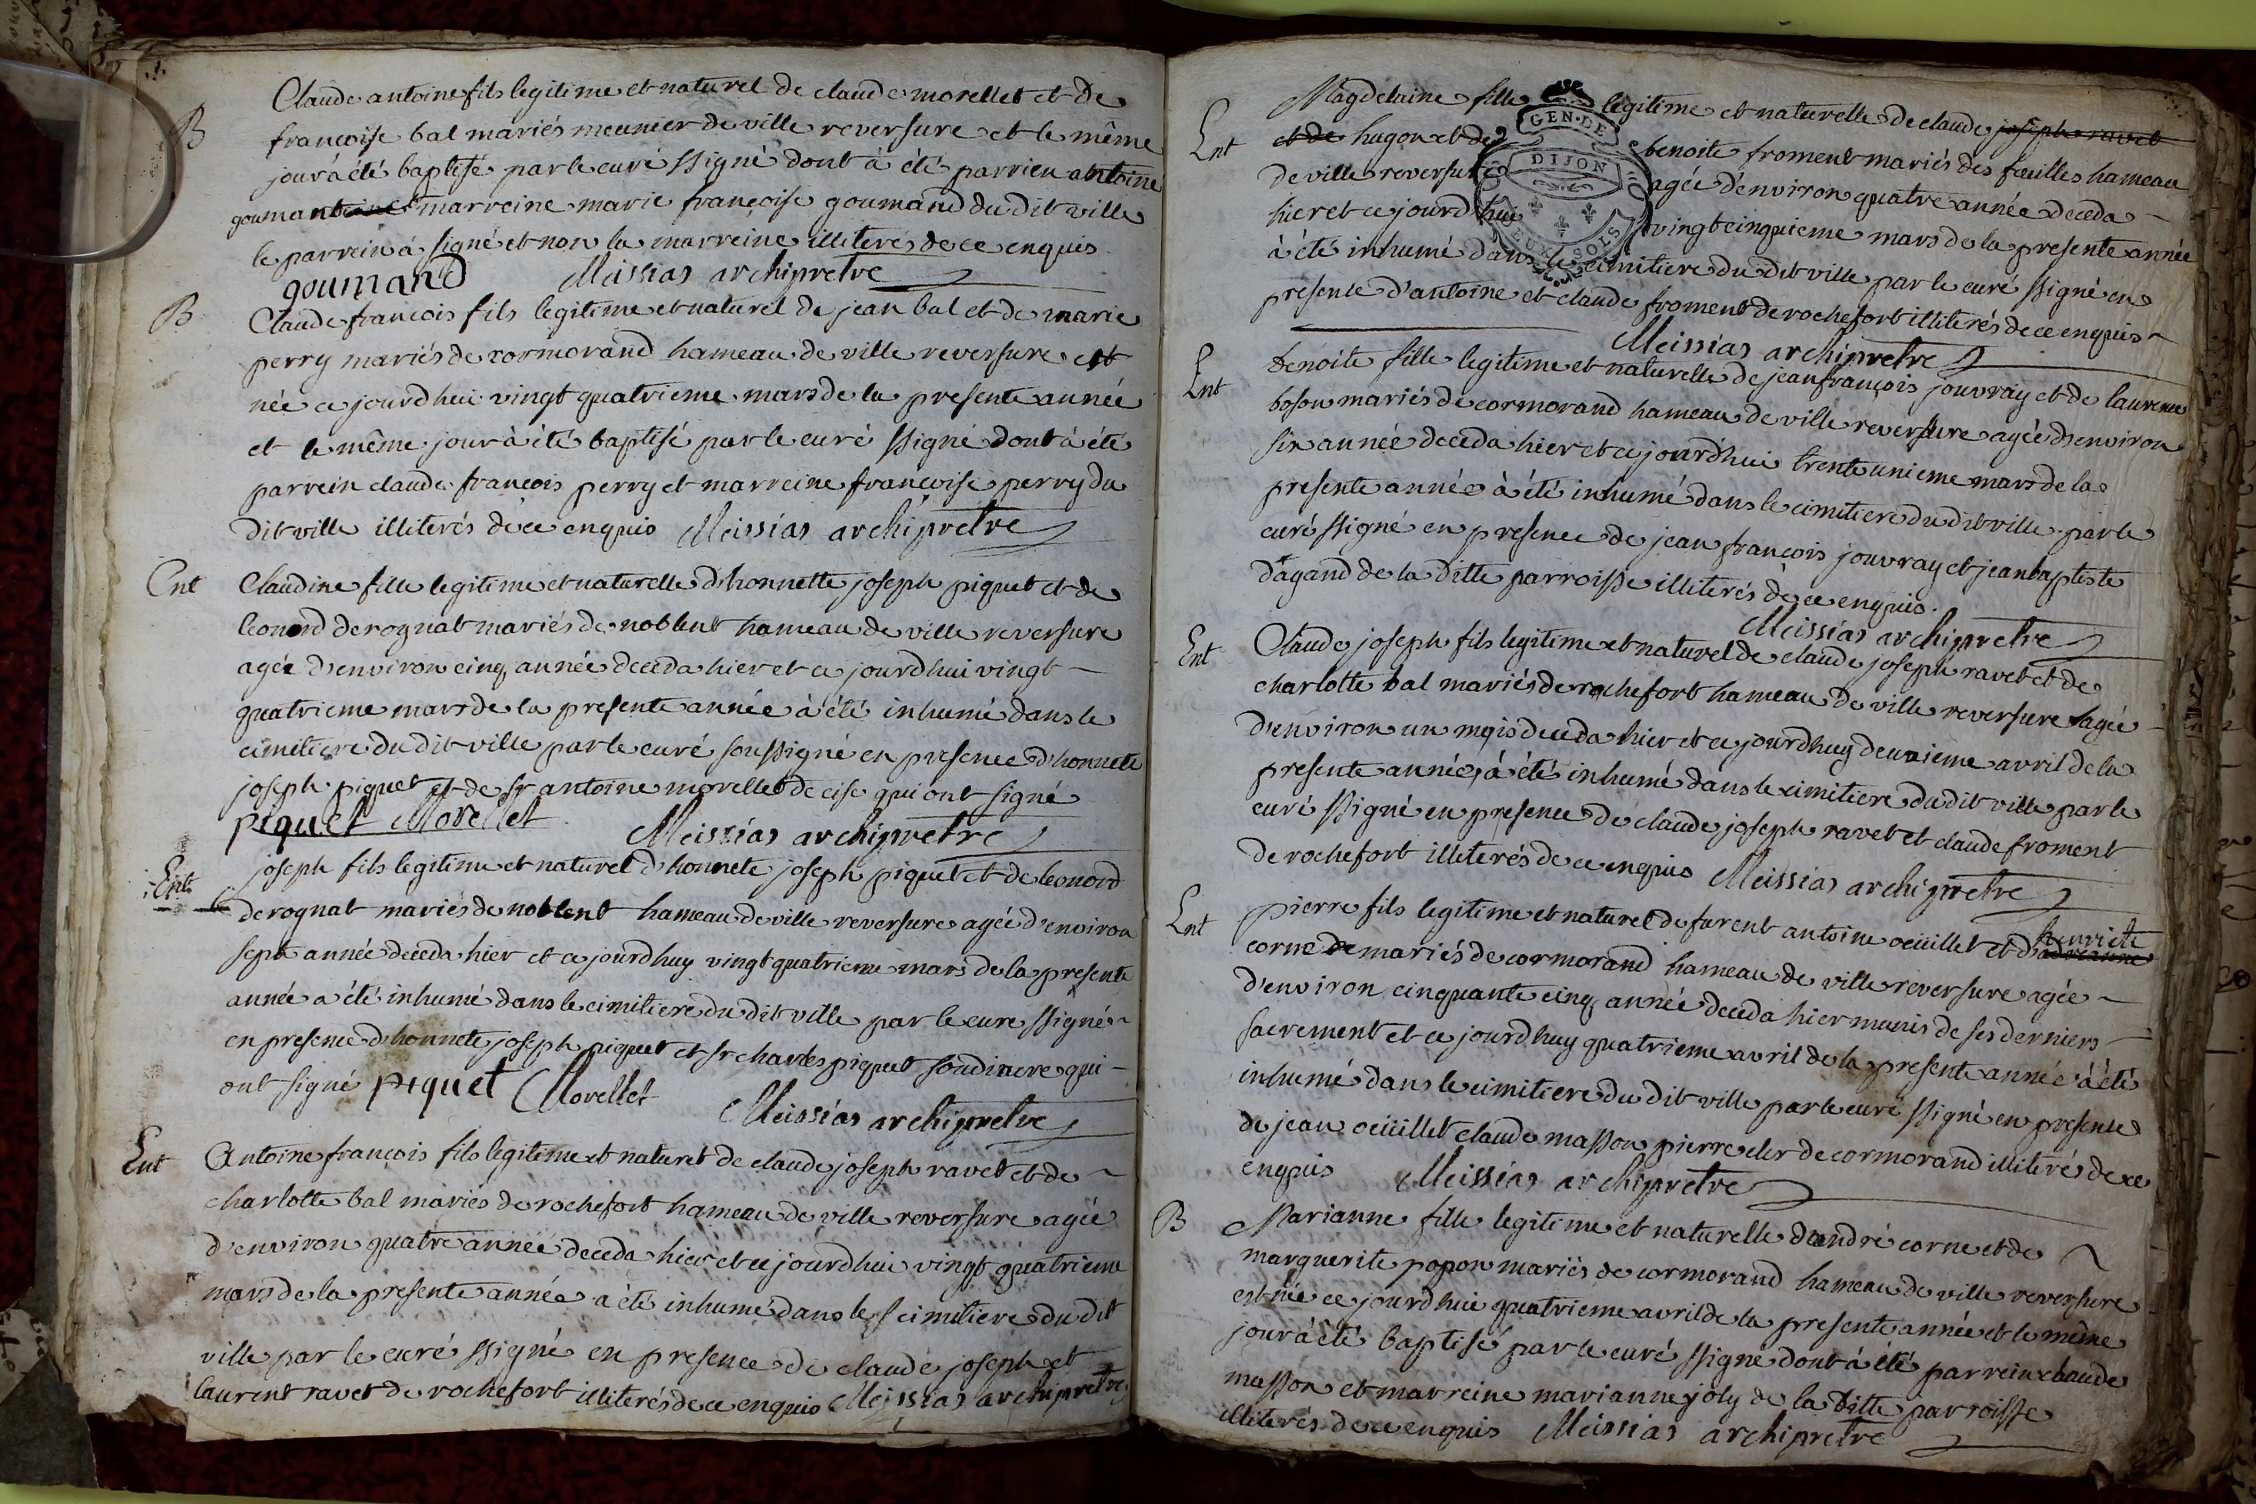 B
Claude antoine fils legitime et naturel de claude morellet et de
françoise bal mariés meunier de ville reversure et le même
jour à été baptisé par le curé ssigné dont à été parrien antoine
goumand et marreine marie françoise goumand du dit ville
le parrein à signé et non la marreine illiterés de ce enquis
goumand Meissias archiprêtre
B
Claude françois fils legitime et naturel de jean bal et de marie
perry mariés de cormorand hameau de ville reversure est
née ce jourd'hui vingt quatrieme mars de la presente année
et le même jour à été baptisé par le curé ssigné dont à été
parrein claude françois perry et marreine françoise perry du
dit ville illiterés de ce enquis Meissias archiprêtre
Ent
Claudine fille legitime et naturelle d'honnette joseph piquet et de
leonord derognat mariés de noblent hameau de ville reversure
agée d'environ cinq année deceda hier et ce jourd'hui vingt
quatrieme mars de la presente année à été inhumé dans le
cimitiere du dit ville par le curé soussigné en presence d'honnete
joseph piquet et de sr antoine morellet de cise qui ont signé
piquet Morellet Meissias archiprêtre
Ent
joseph fils legitime et naturel d'honnete joseph piquet et de leonord
derognat mariés de noblent hameau de ville reversure agée d'environ
sept année deceda hier et ce jourd'huy vingt quatrieme mars de la presente
année a été inhumé dans le cimitiere du dit ville par le cure ssigné
en presence d'honnete joseph piquet et sr charles piquet qui
ont signé piquet Morellet
Meissias archiprêtre
Ent
Antoine françois fils legitime et naturel de claude joseph ravet et de
charlotte bal mariés de rochefort hameau de ville reversure agée
d'environ quatre année deceda hier et ce jourd'hui vingt quatrieme
mars de la presente année a été inhumé dans le cimitiere du dit
ville par le curé ssigné en presence de claude joseph et
laurent ravet de rochefort illiterés de ce enquis Meissias archiprêtre
GEN. DE
DIJON
DEUX SOLS
Ent
Magdelaine fille legitime et naturelle de claude joseph ravet
et de hugon et de benoite froment mariés des fœuilles hameau
de ville reversure agée d'environ quatre année deceda
hier et ce jourd'hui vingt cinquieme mars de la presente année
à été inhumé dans le cimitiere du dit ville par le curé ssigné en
presence d'antoine et claude froment de rochefort illiterés de ce enquis
Meissias archiprêtre
Ent
benoite fille legitime et naturelle de jean françois jouvray et de laurence
boson mariés de cormorand hameau de ville reversure agée d'environ
six année deceda hier et ce jourd'hui trente unieme mars de la
presente année à été inhumé dans le cimitiere du dit ville par le
curé ssigné en presence de jean françois jouvray et jean baptiste
dagand de la ditte parroisse illiterés de ce enquis.
Meissias archiprêtre
Ent
Claude joseph fils legitime et naturel de claude joseph ravet et de
charlotte bal mariés de rochefort hameau de ville reversure agée
d'environ un mois deceda hier et ce jourd'huy deuxieme avril de la
presente année à été inhumé dans le cimitiere du dit ville par le
curé ssigné en presence de claude joseph ravet et claude froment
de rochefort illiterés de ce enquis Meissias archiprêtre
Ent
pierre fils legitime et naturel de farent antoine oeüillet et d'adrianne henriete
corne mariés de cormorand hameau de ville reversure agée
d'environ cinquante cinq année deceda hier munis de ses derniers
sacrement et ce jourd'huy quatrieme avril de la presente année à été
inhumé dans le cimitiere du dit ville par le curé ssigné en presence
de jean oeüillet claude masson pierre cler de cormorand illiteré de ce
enquis Meissias archiprêtre
B
Marianne fille legitime et naturelle d'andré corne et de
marguerite popon mariés de cormorand hameau de ville reversure
est née ce jourd'hui quatrieme avril de la presente année et le même
jour à été baptisé par le curé ssigné dont à été parrein claude
masson et marreine marianne joly de la ditte parroisse
illiterés de ce enquis Meissias archiprêtre